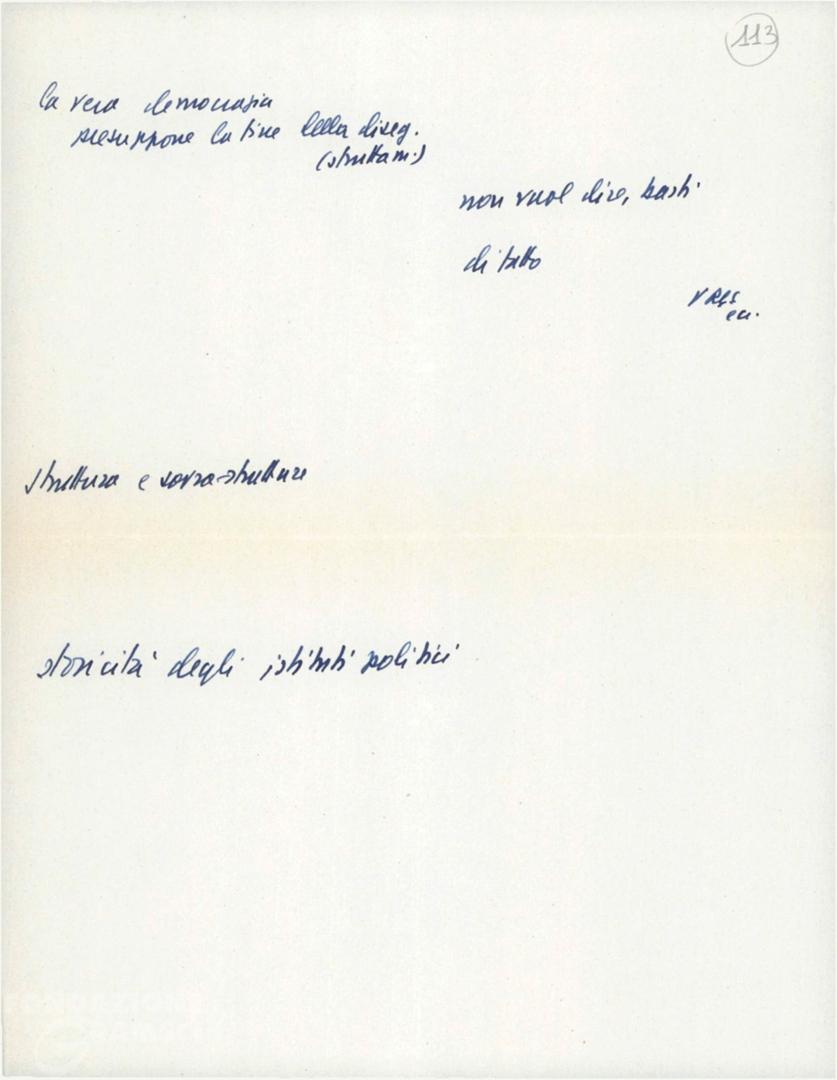 113
la vera democrazia
presuppone la fine della diseg.
(struttam.)
non vuol dire, basti
di fatto
URSS
ecc.
struttura e sovra-strutture
storicità degli istituti politici
FONDAZIONE
GRAMSCI